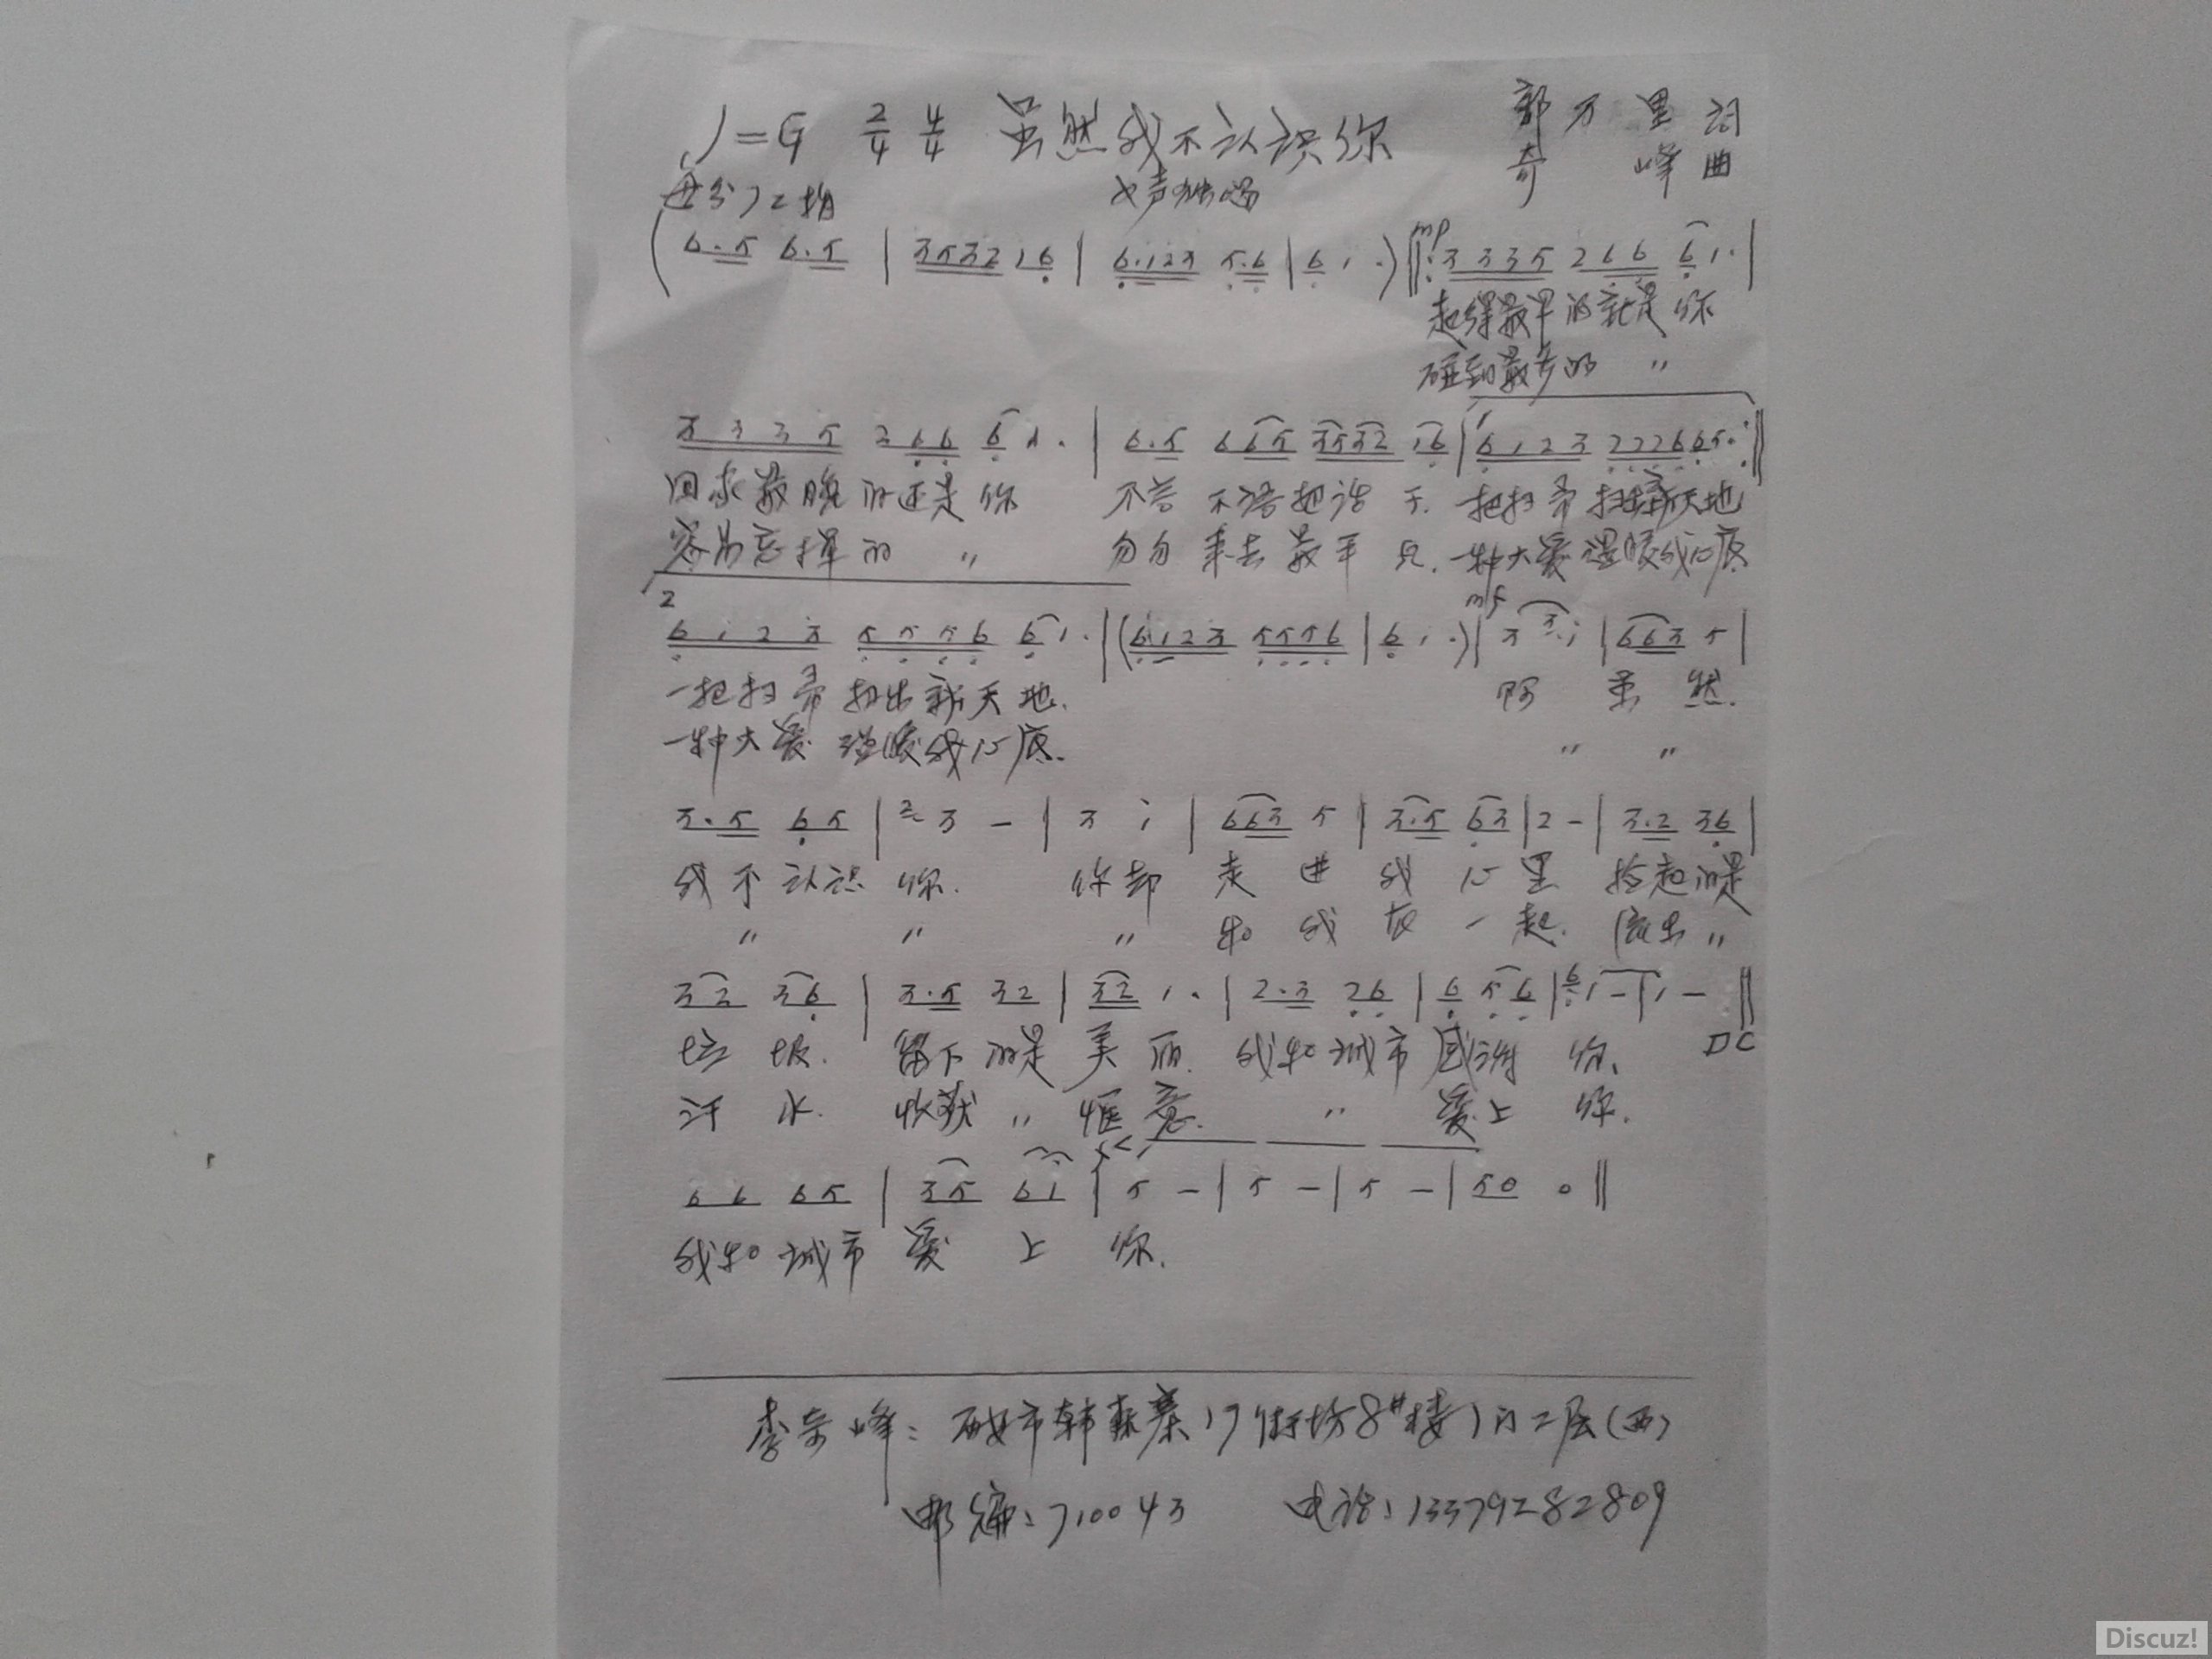 1=G 2/4 4/4 虽然我不认识你 郭万里 词
每分72拍 女声独唱 奇峰 曲
(6.5 6.5 | 3532 16 | 6.123 5.6 | 6 1 .) ‖: mp 3335 266 61. |
起得最早的就是你
碰到最多的 〃
3335 266 61. | 6.5 665 3532 16 | 1 6123 2226 65. :‖
回来最晚的还是你 不言不语把活干. 一把扫帚扫出新天地
容易忘掉的 〃 匆匆来去最平凡. 一种大爱温暖我心底
2
6123 5556 61. | (6123 5556 | 6 1 .) | mf 3 3 i | 663 5 |
一把扫帚扫出新天地. 啊 虽然.
一种大爱温暖我心底. 〃 〃
3.5 65 | 2 3 - | 3 i | 663 5 | 3.5 63 | 2 - | 3.2 36 |
我不认识你. 你却走进我心里 捡起的是
〃 〃 〃 和我在一起. 流出〃
32 36 | 3.5 32 | 32 1. | 2.3 26 | 6 56 | 6 1 - | 1 - ‖
垃圾. 留下的是美丽. 我和城市感谢你. DC
汗水. 收获〃惬意. 〃 爱上你.
66 65 | 35 61 | 5 - | 5 - | 5 - | 50 0 ‖
我和城市爱上你.
李奇峰: 西安市韩森寨17街坊8#楼1门2层(西)
邮编:710043 电话:13379282809
Discuz!